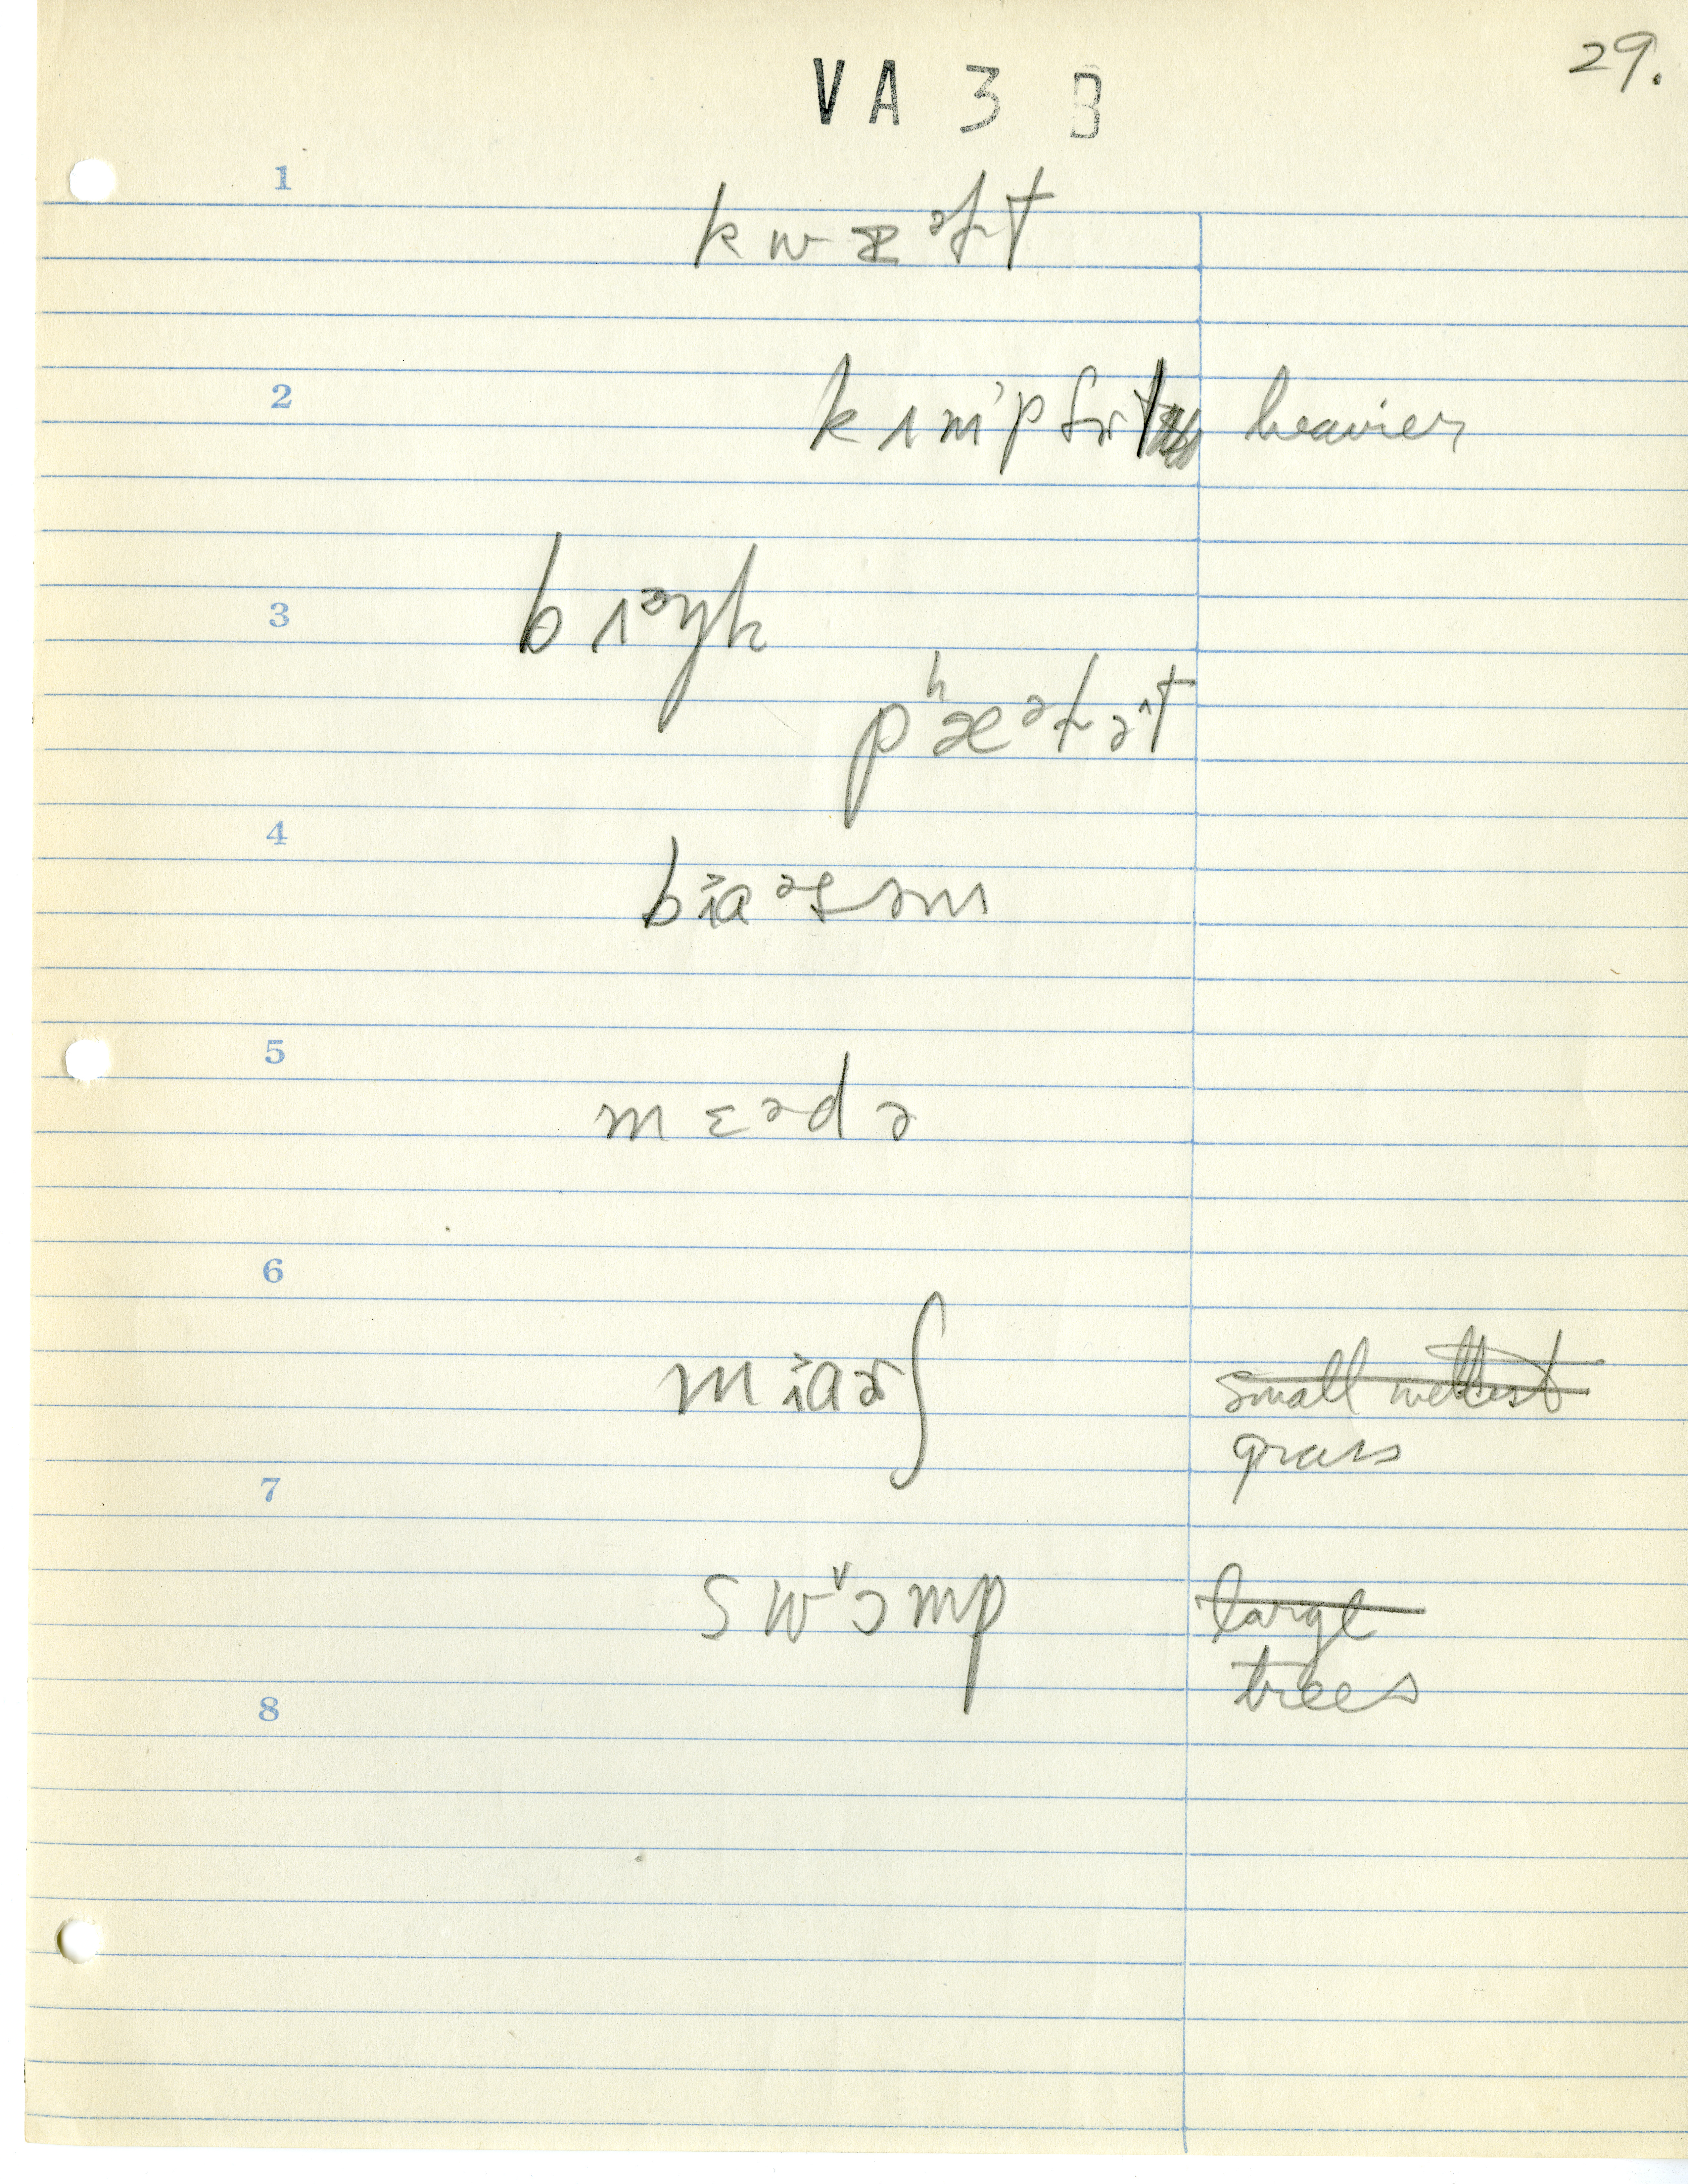 29.
VA 3 B
1
k w ɪ ᵊɫ t
2
k ʌ m' p f ɚ t heavier
3
b ɪ ᵊ ŋ k
pʰ æ ᵊ ɫ ə ᶺ t
4
b ɪ̯ɑ ᵊ z ə m
5
m ɛ ᵊ d ə
6
m ɪ̯ɑ ɚ ʃ small wettest
grass
7
s w ᵛ ɔ m p large
trees
8